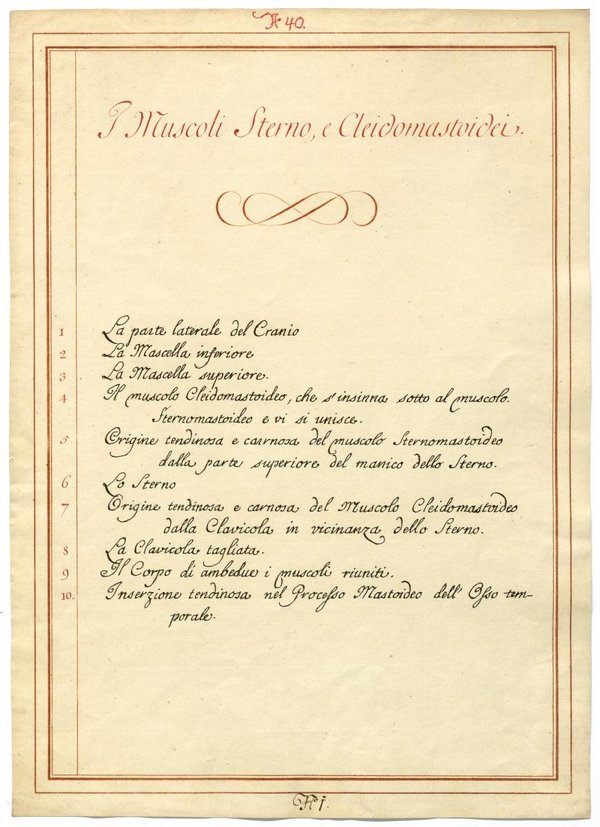 N 40.
I Muscoli Sterno, e Cleidomastoidei.
1 La parte laterale del Cranio
2 La Mascella inferiore
3 La Mascella superiore.
4 Il muscolo Cleidomastoideo, che s'insinna sotto al muscolo
Sternomastoideo e vi si unisce.
5 Origine tendinosa e carnosa del muscolo Sternomastoideo
dalla parte superiore del manico dello Sterno.
6 Lo Sterno
7 Origine tendinosa e carnosa del Muscolo Cleidomastoideo
dalla Clavicola in vicinanza dello Sterno.
8 La Clavicola tagliata.
9 Il Corpo di ambedue i muscoli riuniti.
10. Inserzione tendinosa nel Processo Mastoideo dell' Osso tem-
porale.
N 1.